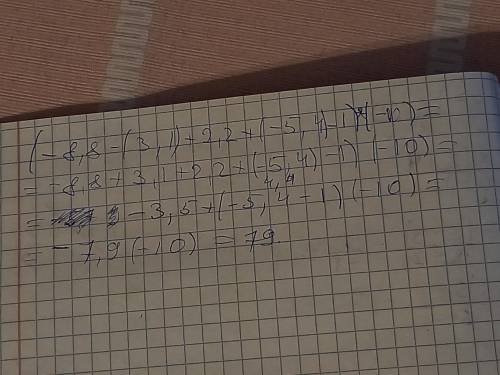 (-8,8-(3,1)+2,2+(-5,4)-1)*(-10)=
=-8,8+3,1+2,2+(-5,4)-1)(-10)=
=-3,5+(-5,4-1)(-10)=
4,4
=-7,9(-10)=79.